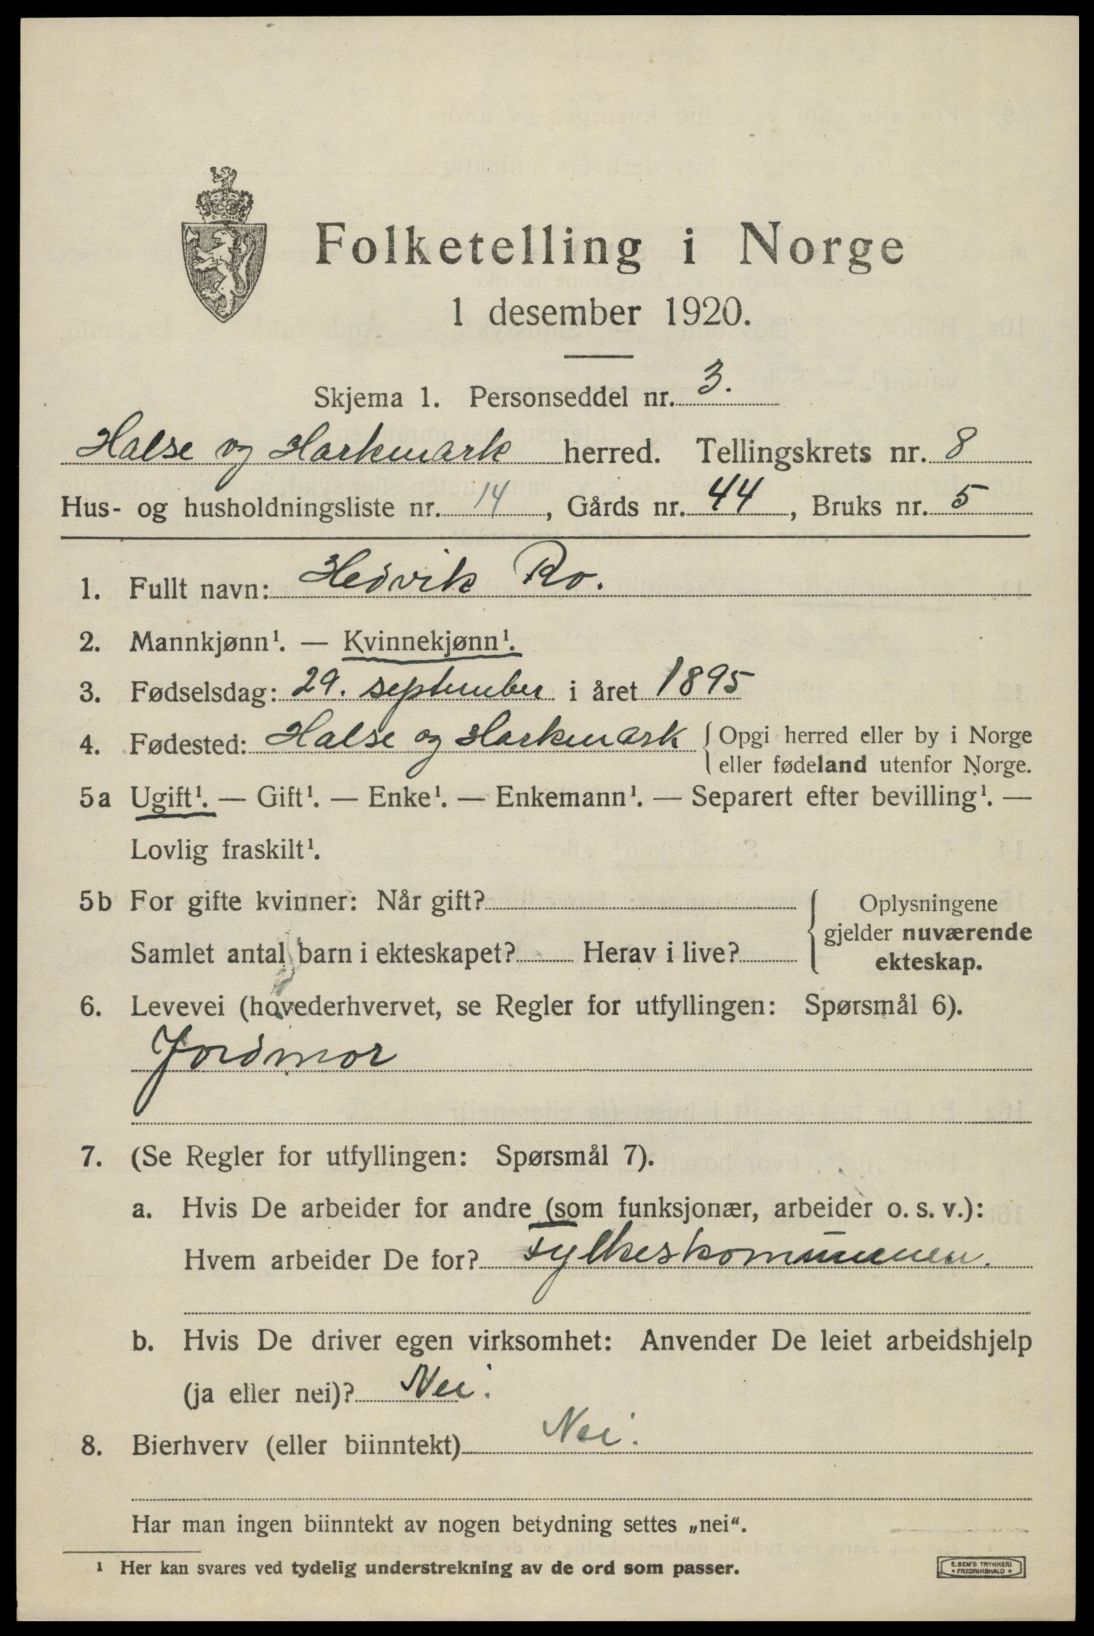 Folketelling i Norge
1 desember 1920.
Skjema 1. Personseddel nr. 3.
Halse og Harkmark herred. Tellingskrets nr. 8
Hus- og husholdningsliste nr. 14, Gårds nr. 44, Bruks nr. 5
1. Fullt navn: Hedvik Ro.
2. Mannkjønn¹. — Kvinnekjønn¹.
3. Fødselsdag: 29. september i året 1895
4. Fødested: Halse og Harkmark { Opgi herred eller by i Norge
eller fødeland utenfor Norge.
5a Ugift¹. — Gift¹. — Enke¹. — Enkemann¹. — Separert efter bevilling¹. —
Lovlig fraskilt¹.
5b For gifte kvinner: Når gift? { Oplysningene
gjelder nuværende
Samlet antal barn i ekteskapet? Herav i live? ekteskap.
6. Levevei (hovederhvervet, se Regler for utfyllingen: Spørsmål 6).
Jordmor
7. (Se Regler for utfyllingen: Spørsmål 7).
a. Hvis De arbeider for andre (som funksjonær, arbeider o. s. v.):
Hvem arbeider De for? Fylkeskommunen.
b. Hvis De driver egen virksomhet: Anvender De leiet arbeidshjelp
(ja eller nei)? Nei.
8. Bierhverv (eller biinntekt) Nei.
Har man ingen biinntekt av nogen betydning settes „nei“.
¹ Her kan svares ved tydelig understrekning av de ord som passer.
E. SEM'S TRYKKERI
• FREDRIKSHALD •